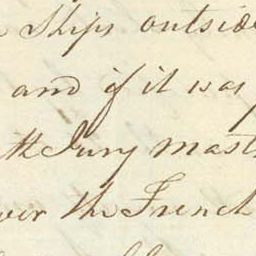 Ships outside
and if it was
th Jury masts
ver the French